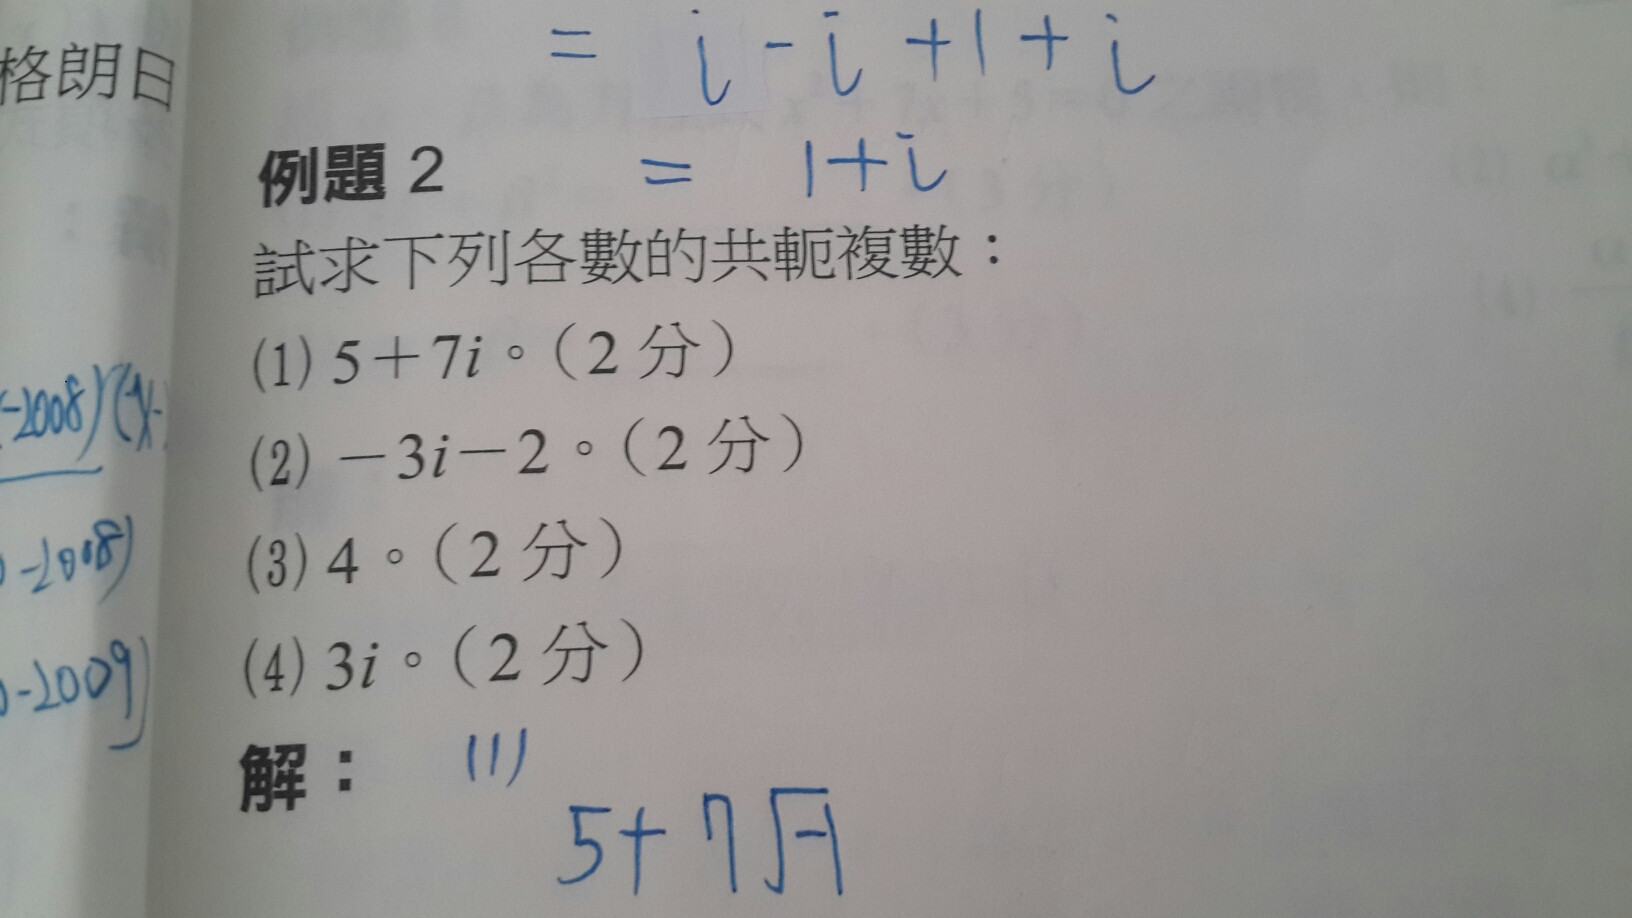 格朗日
= i - i + 1 + i
例題 2 = 1 + i
試求下列各數的共軛複數：
(1) 5＋7i。（2 分）
(2) －3i－2。（2 分）
(3) 4。（2 分）
(4) 3i。（2 分）
-2008)(x-
-2008)
-2009)
解： (1)
5+7√-1